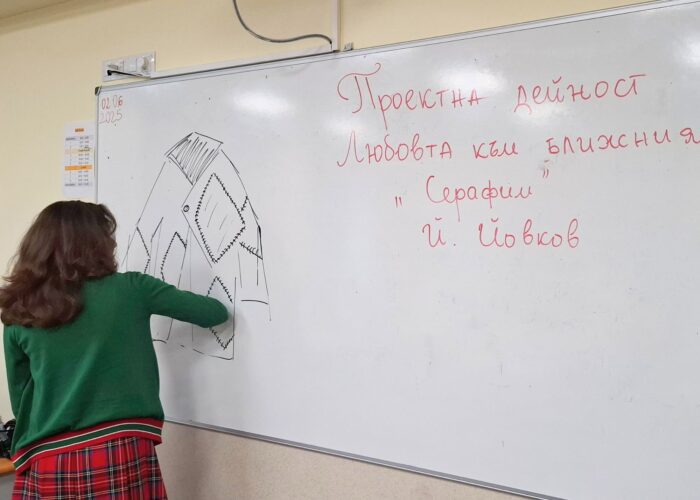 02.06
2025
Проектна дейност
Любовта към ближния
„Серафим"
Й. Йовков